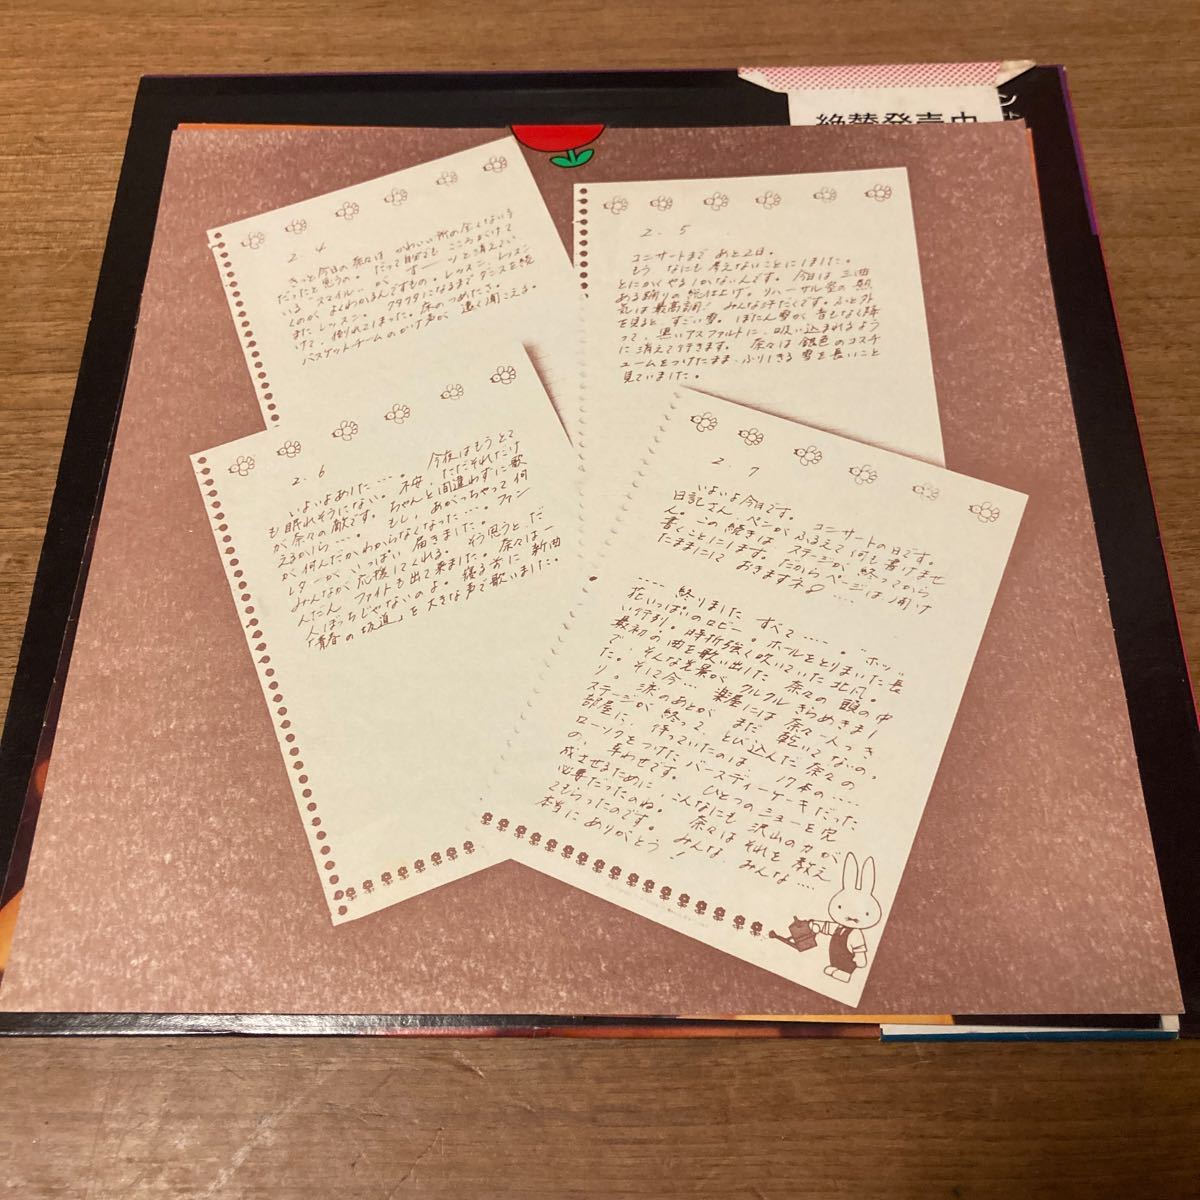 絶賛発売中
ン
2. 4
きっと今日の奈々は かわいい所の全くない子
だったと思うの。だって胸でも こころがけて
いる "スマイル" が、すーーッと消えてい
くのが よくわかるんですもの。レッスン、レッスン
また レッスン。クタクタになるまで ダンスを続
けて、倒れてしまった。床のつめたさ。
バスケットチームのかけ声が 遠く聞こえる。
2. 5
コンサートまで あと2日。
もう なにも考えないことにしました。
とにかくやるしかないんです。今日は 三曲
ある踊りの総仕上げ。リハーサル室の熱
気は最高調! みんな汗だくです。ふと外
を見ると、すごい雪。ぼたん雪が 音もなく降
って、黒いアスファルトに、吸い込まれるよう
に消えて行きます。奈々は 銀色のコスチ
ュームをつけたまま、ふりしきる 雪を長いこと
見ていました。
2. 6
いよいよあした‥‥。 今夜はもうとて
も眠れそうにない。不安、ただそれだけ
が奈々の敵です。ちゃんと間違わずに歌
えるかしら‥‥。もし、あがっちゃって何
が何んだかわからなくなった‥‥。ファン
レターが いっぱい 届きました。
みんなが応援してくれる。そう思うと、だ
んだん ファイトも出て来ました。奈々は一
人ぼっちじゃないのよ。寝る前に 新曲
「青春の坂道」を大きな声で歌いました。
2. 7
いよいよ今日です。 コンサートの日です。
日記さん、ペンが ふるえて何も書けませ
ん。この続きは ステージが終ってから
書くことにします。だからページは 開け
たままにして おきますネ ‥‥
‥‥ 終りました すべて ‥‥
花いっぱいのロビー。ホールをとりまいた長
い行列。時折強く吹いていた北風。
最初の曲を歌い出した 奈々の 頭の中
で、そんな光景が クルクル きらめきまし
た。そして今‥‥ 楽屋には 奈々一人っき
り。 涙のあとが まだ 乾いてないの。
ステージが 終って、とび込んだ 奈々の
部屋に、待っていたのは 17本の‥‥
ローソクをつけた バースデイーケーキだった
の、幸わせです。 ひとつのショーを完
成させるために、こんなにも 沢山の力が
必要だったのね。 奈々は それを 教え
てもらったのです。みんな、みんな‥‥
本当に ありがとう!